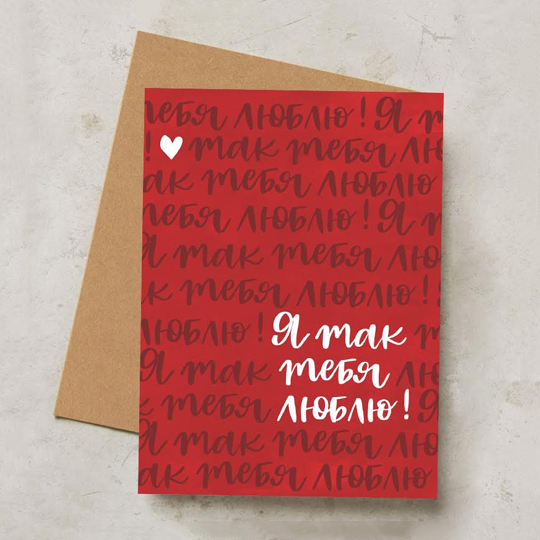 тебя люблю! Я т
! ♥ так тебя лю
ак тебя люблю
тебя люблю! Я т
Я так тебя люблю
ак тебя люблю!
люблю! Я так т
Я так тебя лю
к тебя люблю! Я
Я так тебя люблю
ак тебя люблю